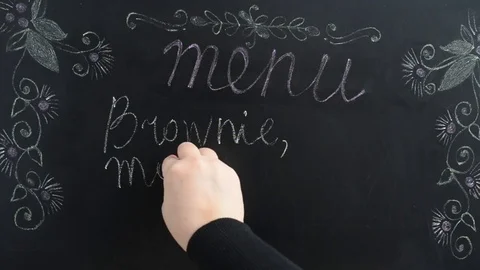 menu
Brownie,